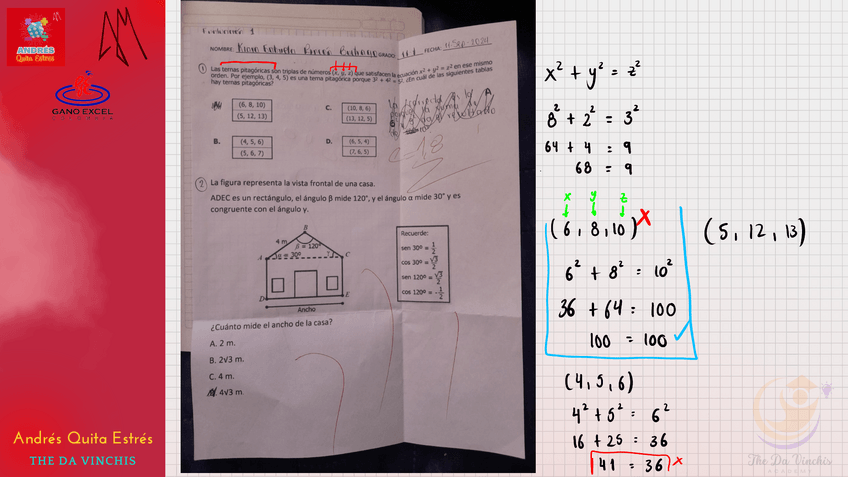 ANDRÉS
Quita Estres
AM
GANO EXCEL
Andrés Quita Estrés
THE DA VINCHIS
Evaluación 1
NOMBRE:
GRADO: 11.1 FECHA
1 Las ternas pitagóricas son triplas de números (x, y, z) que satisfacen la ecuación x² + y² = z² en ese mismo
orden. Por ejemplo, (3, 4, 5) es una terna pitagórica porque 3² + 4² = 5². ¿En cuál de las siguientes tablas
hay ternas pitagóricas?
A. (6, 8, 10)
(5, 12, 13)
C. (10, 8, 6)
(13, 12, 5)
B. (4, 5, 6)
(5, 6, 7)
D. (6, 5, 4)
(7, 6, 5)
2 La figura representa la vista frontal de una casa.
ADEC es un rectángulo, el ángulo β mide 120°, y el ángulo α mide 30° y es
congruente con el ángulo γ.
B
4 m
β = 120°
A α = 30° γ C
D E
Ancho
Recuerde:
sen 30º = 1/2
cos 30º = √3/2
sen 120º = √3/2
cos 120º = -1/2
¿Cuánto mide el ancho de la casa?
A. 2 m.
B. 2√3 m.
C. 4 m.
4√3 m.
x² + y² = z²
8² + 2² = 3²
64 + 4 = 9
68 = 9
x y z
(6, 8, 10) x
(5, 12, 13)
6² + 8² = 10²
36 + 64 = 100
100 = 100 ✓
(4, 5, 6)
4² + 5² = 6²
16 + 25 = 36
41 = 36 x
The Da Vinchis
ACADEMY